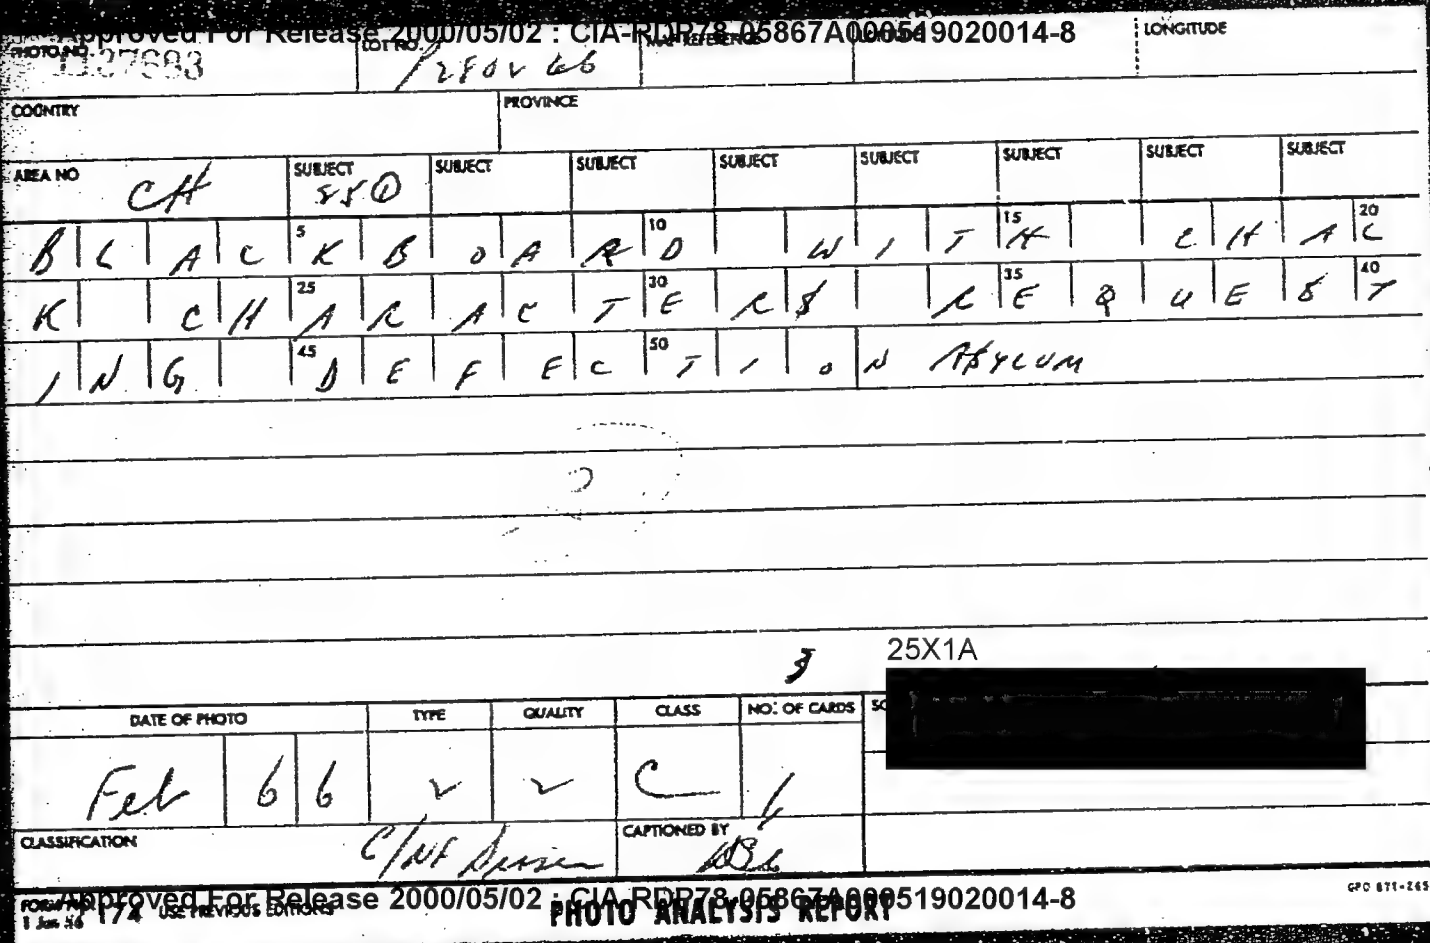 Approved For Release 2000/05/02 : CIA-RDP78-05867A000519020014-8
PHOTO NO. 1137683 LOT NO. MAP REFERENCE LONGITUDE
COUNTRY PROVINCE
AREA NO CH SUBJECT 550 SUBJECT SUBJECT SUBJECT SUBJECT SUBJECT SUBJECT SUBJECT
5 10 15 20
BLACKBOARD WITH CHAL
25 30 35 40
K CHARACTERS REQUEST
45 50
ING DEFECTION ASYLUM
25X1A
DATE OF PHOTO TYPE QUALITY CLASS NO. OF CARDS
Feb 66 2 2 C 1
CLASSIFICATION C/NF CAPTIONED BY
Approved For Release 2000/05/02 : CIA-RDP78-05867A000519020014-8
FORM NO. 174 USE PREVIOUS EDITIONS PHOTO ANALYSIS REPORT
1 Jan 56
GPO 871-265